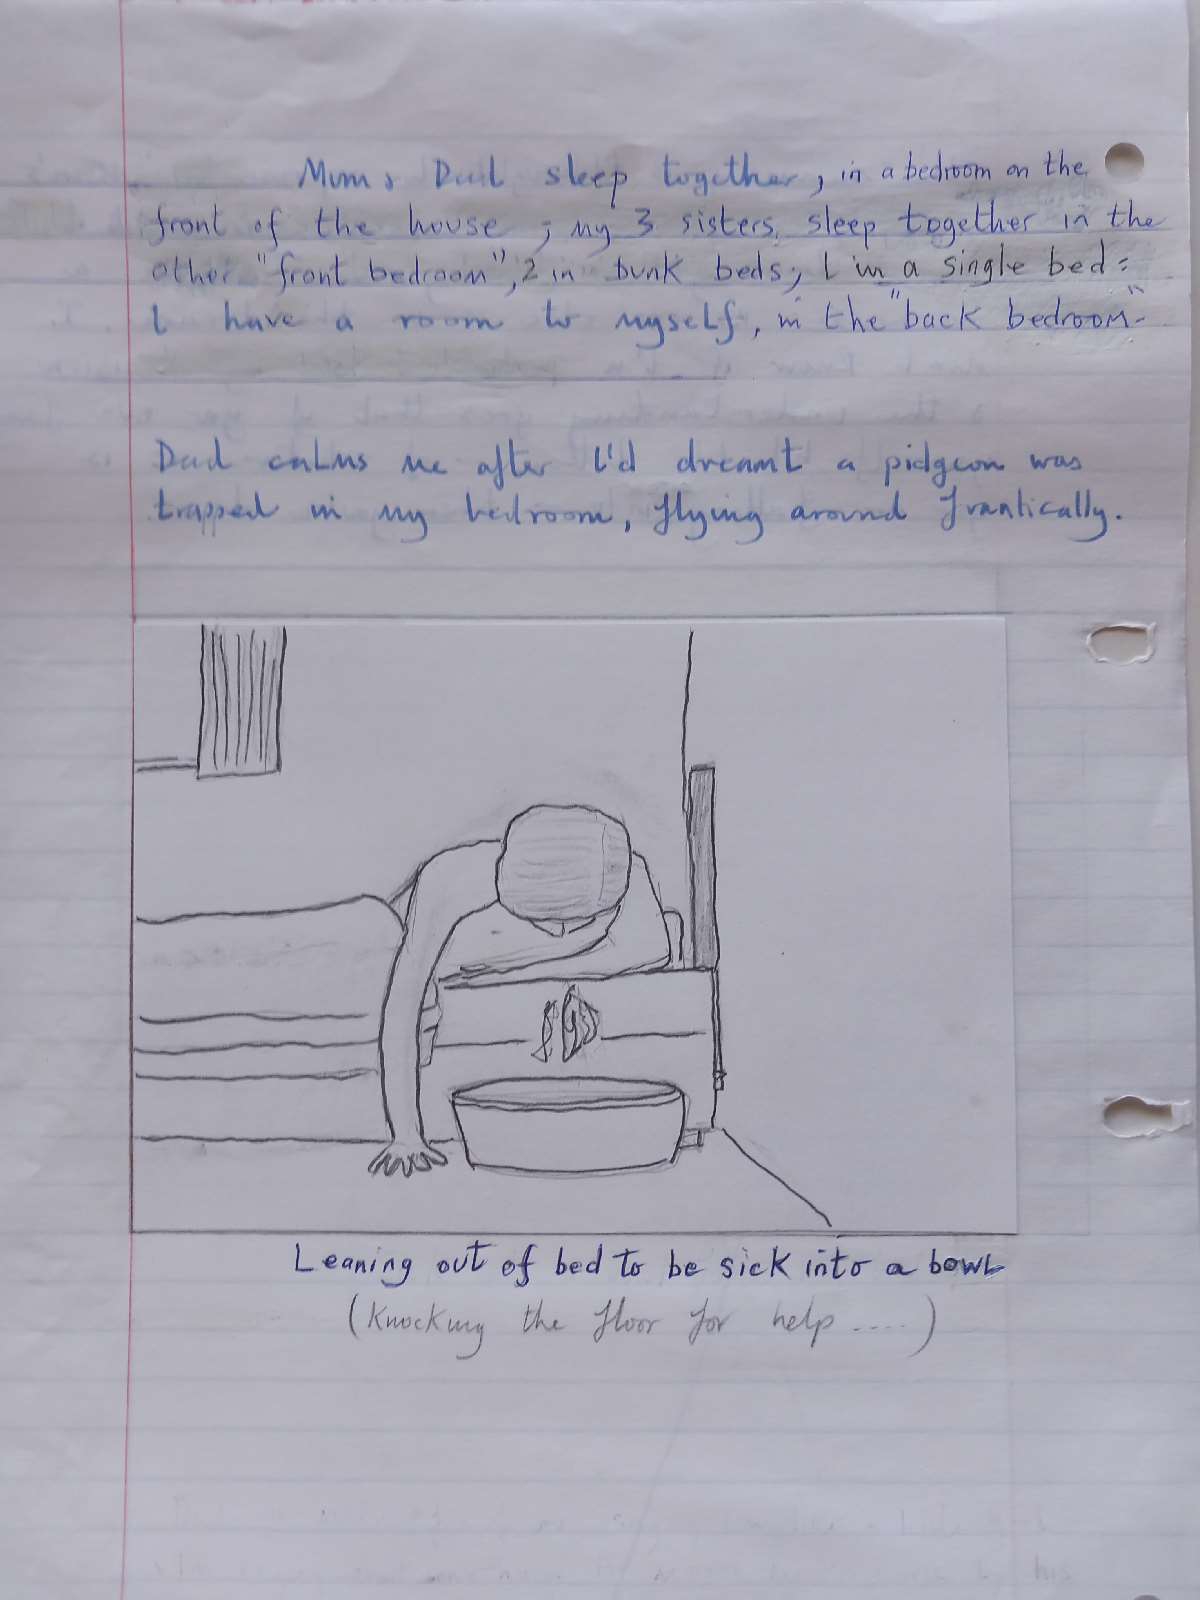 Mum & Dad sleep together, in a bedroom on the
front of the house; my 3 sisters, sleep together in the
other "front bedroom", 2 in bunk beds, 1 in a single bed:
I have a room to myself, in the "back bedroom"
Dad calms me after I'd dreamt a pidgeon was
trapped in my bedroom, flying around frantically.
Leaning out of bed to be sick into a bowl
(Knocking the floor for help.....)